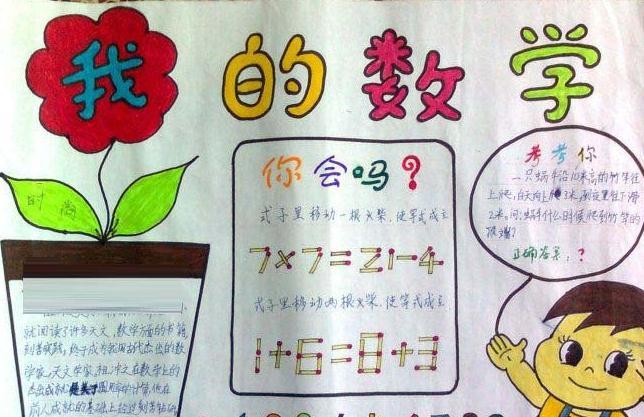 我的数学
时尚
你会吗?
式子里移动一根火柴,使等式成立
7×7=21-4
式子里移动两根火柴,使等式成立
1+6=8+3
考考你
一只蜗牛沿10米高的竹竿往
上爬,白天向上爬3米,到夜里往下滑
2米。问:蜗牛什么时候爬到竹竿的
顶端?
正确答案:?
就阅读了许多天文、数学方面的书籍
刻苦实践,终于成为我国古代杰出的数
学家、天文学家。祖冲之在数学上的
杰出成就 圆周率的计算,他在
前人成就的基础上经过刻苦钻研